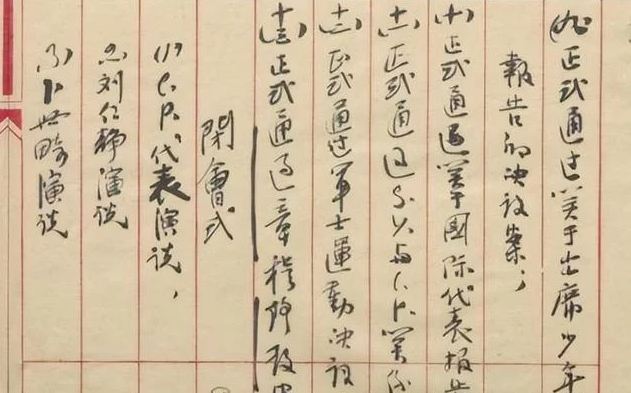 (九)正式通过关于出席少年
報告的决议案;
(十)正式通过关于國际代表报告
(十一)正式通过S.Y.与C.P.关系
(十二)正式通过军士運動决议
(十三)正式通过章程修改
閉會式
(1)C.P.代表演说,
(2)刘仁静演说
(3)卜世畸演说